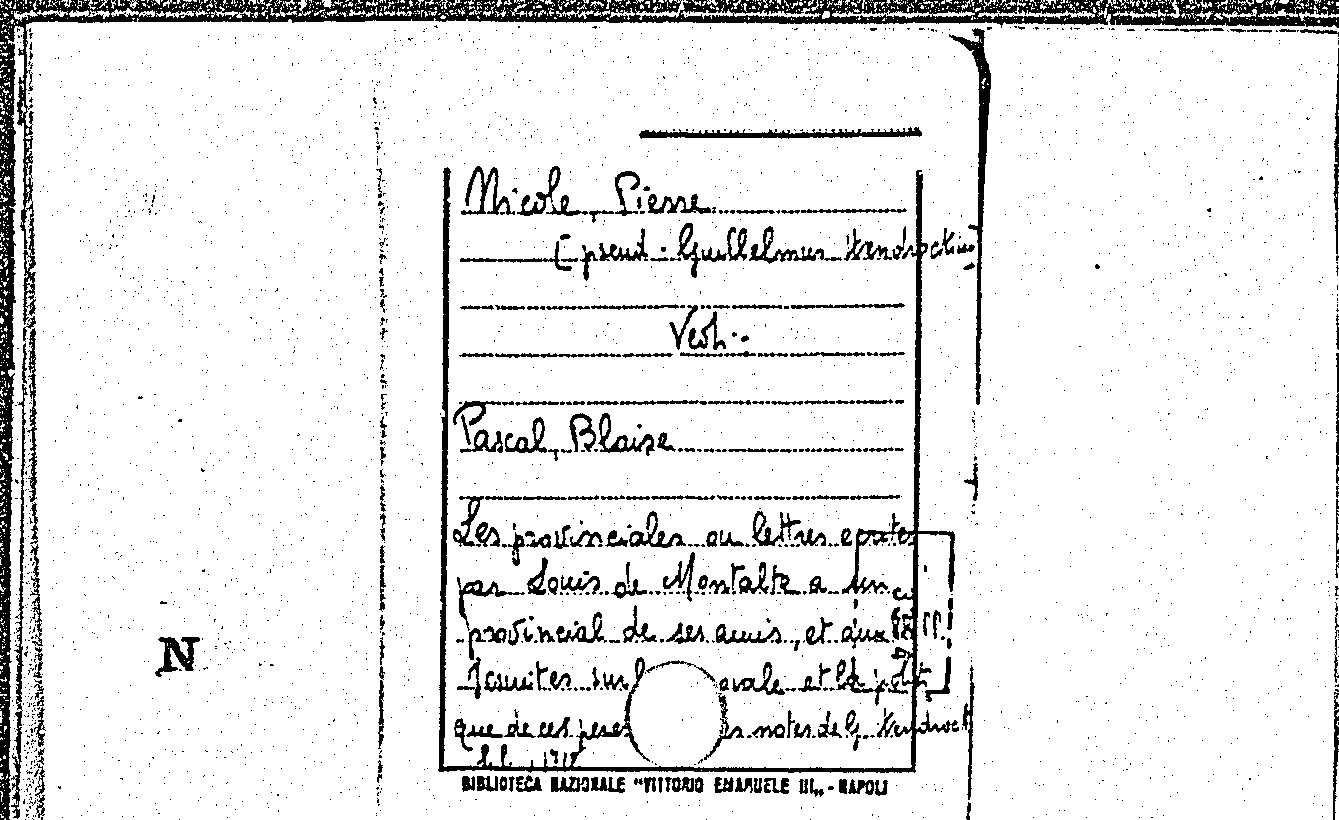 Nicole, Pierre
[pseud. Guillelmus Wendroctius]
Vedi:
Pascal, Blaise
Les provinciales ou lettres ecrites
par Louis de Montalte a un
provincial de ses amis, et aux RR. PP.
Jesuites sur l orale et la polit
que de ces peres es notes de G. Wendrock
N
BIBLIOTECA NAZIONALE "VITTORIO EMANUELE III" - NAPOLI